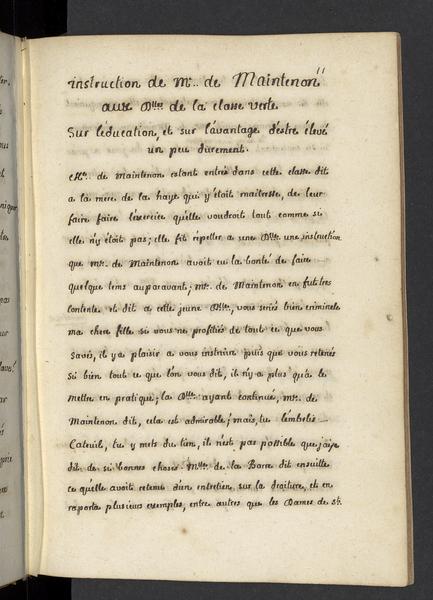 instruction de Me. de Maintenon
11
aux Dlles de la classe verte
Sur l'éducation, et sur l'avantage d'estre élevé
un peu durement.
Me. de maintenon estant entrée dans cette classe dit
a la mere de la haye qui y étoit maitresse, de leur
faire faire l'exercice qu'elle voudroit tout comme si
elle n'y étoit pas; elle fit repeter a une Dlle. une instruction
que me. de Maintenon avoit eu la bonté de faire
quelque tems auparavant; me. de Maintenon en fut tres
contente et dit a cette jeune Dlle., vous seriés bien criminele
ma chere fille si vous ne profitiés de tout ce que vous
savés, il y a plaisir a vous instruire puis que vous retenés
si bien tout ce que l'on vous dit, il n'y a plus qu'a le
mettre en pratique; la Dlle ayant continué, me. de
Maintenon dit, cela est admirable; mais, tu l'embelis
Cateuil, tu y mets du tien, il n'est pas possible que j'aye
dit de si bonnes choses. Mlle. de la Bara dit ensuitte
ce qu'elle avoit retenu d'un entretien sur la droiture, et en
raporta plusieurs exemples, entre autres que les Dames de st.